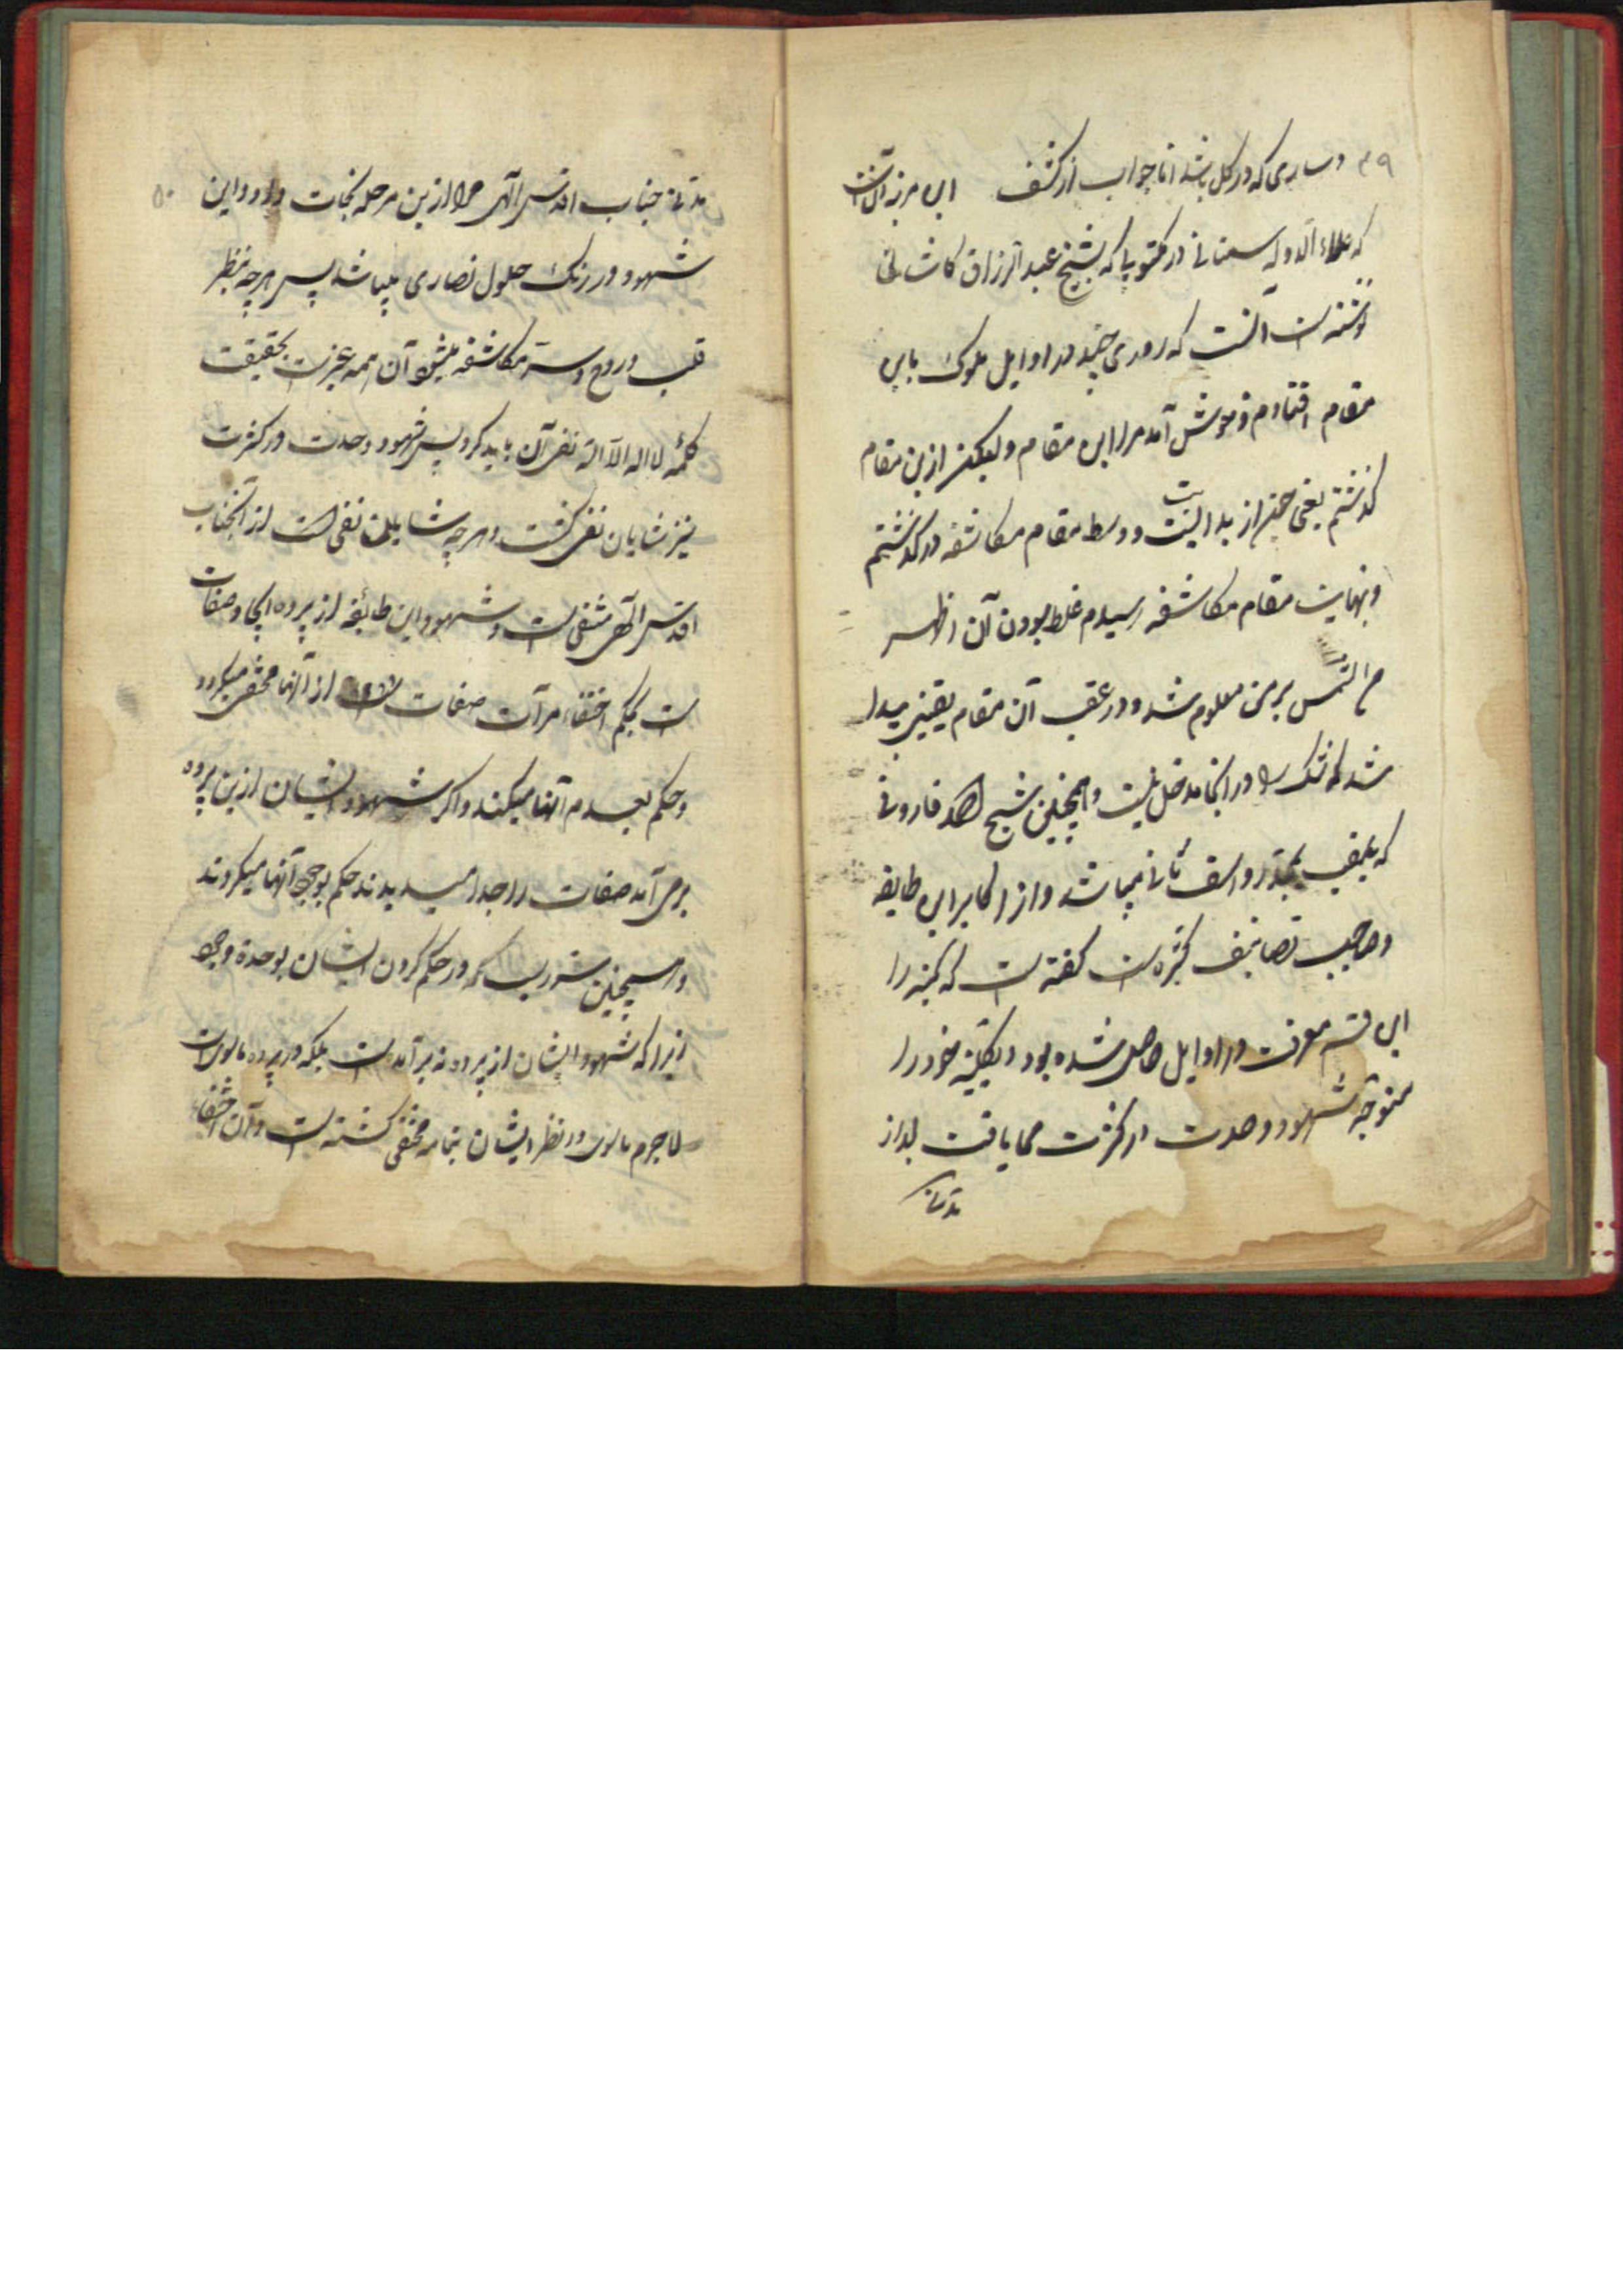 ۴۹
وساری که در کل باشد اما جواب از کشف این مرتبه آنست
که علاء الدوله سمنانی در مکتوبی که بشیخ عبد الرزاق کاشانی
نوشته است آنست که روزی چند در اوایل سلوک باین
مقام افتادم و خوش آمد مرا این مقام و لیکن ازین مقام
گذشتم یعنی چون از بدایت و وسط مقام مکاشفه در گذشتم
و بنهایت مقام مکاشفه رسیدم غلط بودن آن اظهر
من الشمس بر من معلوم شد و در عقب آن مقام یقینی پیدا
شد که شک را در آنجا مدخل نیست و همچنین شیخ احمد فاروقی
که بلقب مجدد الف ثانی میباشد و از اکابر این طایفه
و صاحب تصانیف کثیره است گفته است که کمینه را
این قسم معرفت در اوایل حاصل شده بود و بکلیه خود را
متوجه شهود وحدت در کثرت می یافت بعد از
مدتی
۵۰
مدتی جناب اقدس الهی مرا ازین مرحله نجات داد و این
شهود در رنک حلول نصاری میباشد پس هر چه بنظر
قلب و روح و سر مکاشفه میشود آن همه غیر است بحقیقت
کلمه لا اله الا الله نفی آن باید کرد پس شهود وحدت در کثرت
نیز شایان نفی گشت و هر چه شایان نفی است از آنجناب
اقدس الهی منتفی است و شهود این طائفه از پرده
است بحکم اختفاء مرآت صفات از آنها مختفی میگردد
و حکم بعدم آنها میکنند و اگر شهود ایشان ازین پرده
برمی آمد صفات را جدا میدیدند حکم بوجود آنها میکردند
و همچنین در حکم کردن ایشان بوحدة وجود
زیرا که شهود ایشان از پرده نه برآمده است بلکه در پرده
لاجرم در نظر ایشان بتمامه مختفی گشته است و آن اختفاء